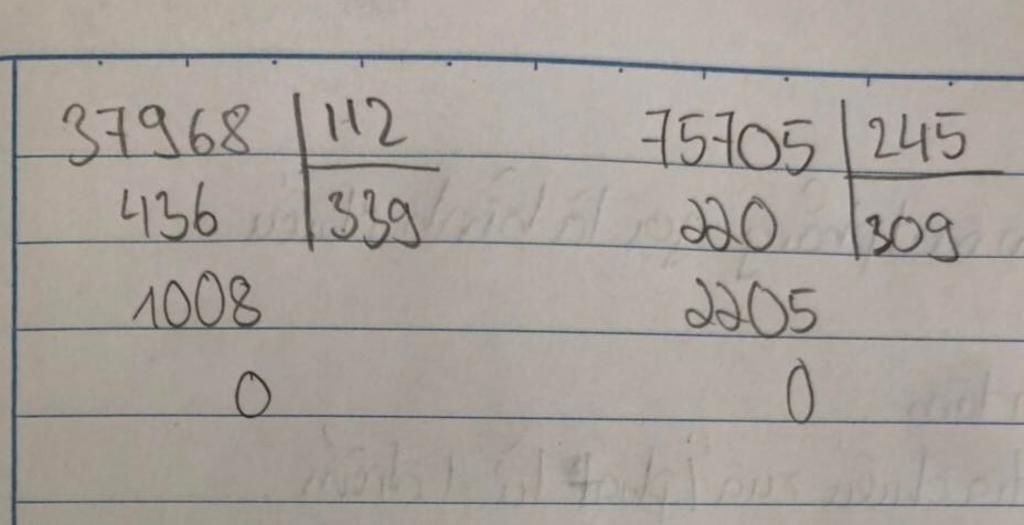 37968 112 75705 245
436 339 220 309
1008 2205
0 0